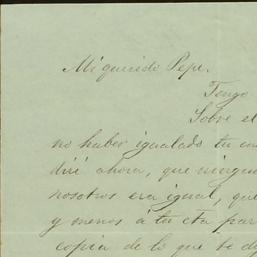 Mi querido Pepe.
Tengo
Sobre el
no haber igualado tu
diré ahora, que ningu
nosotros era igual, que
y menos á tu cta par
copia de lo que te di